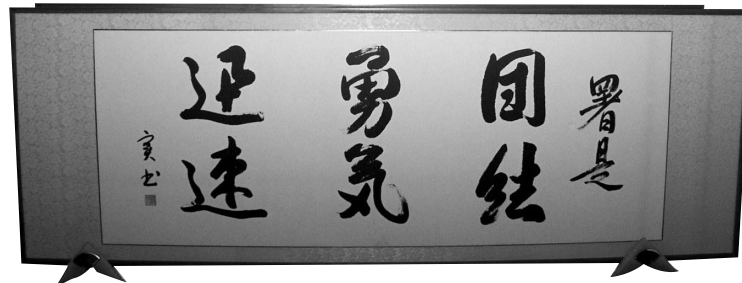 署是
団結
勇気
迅速